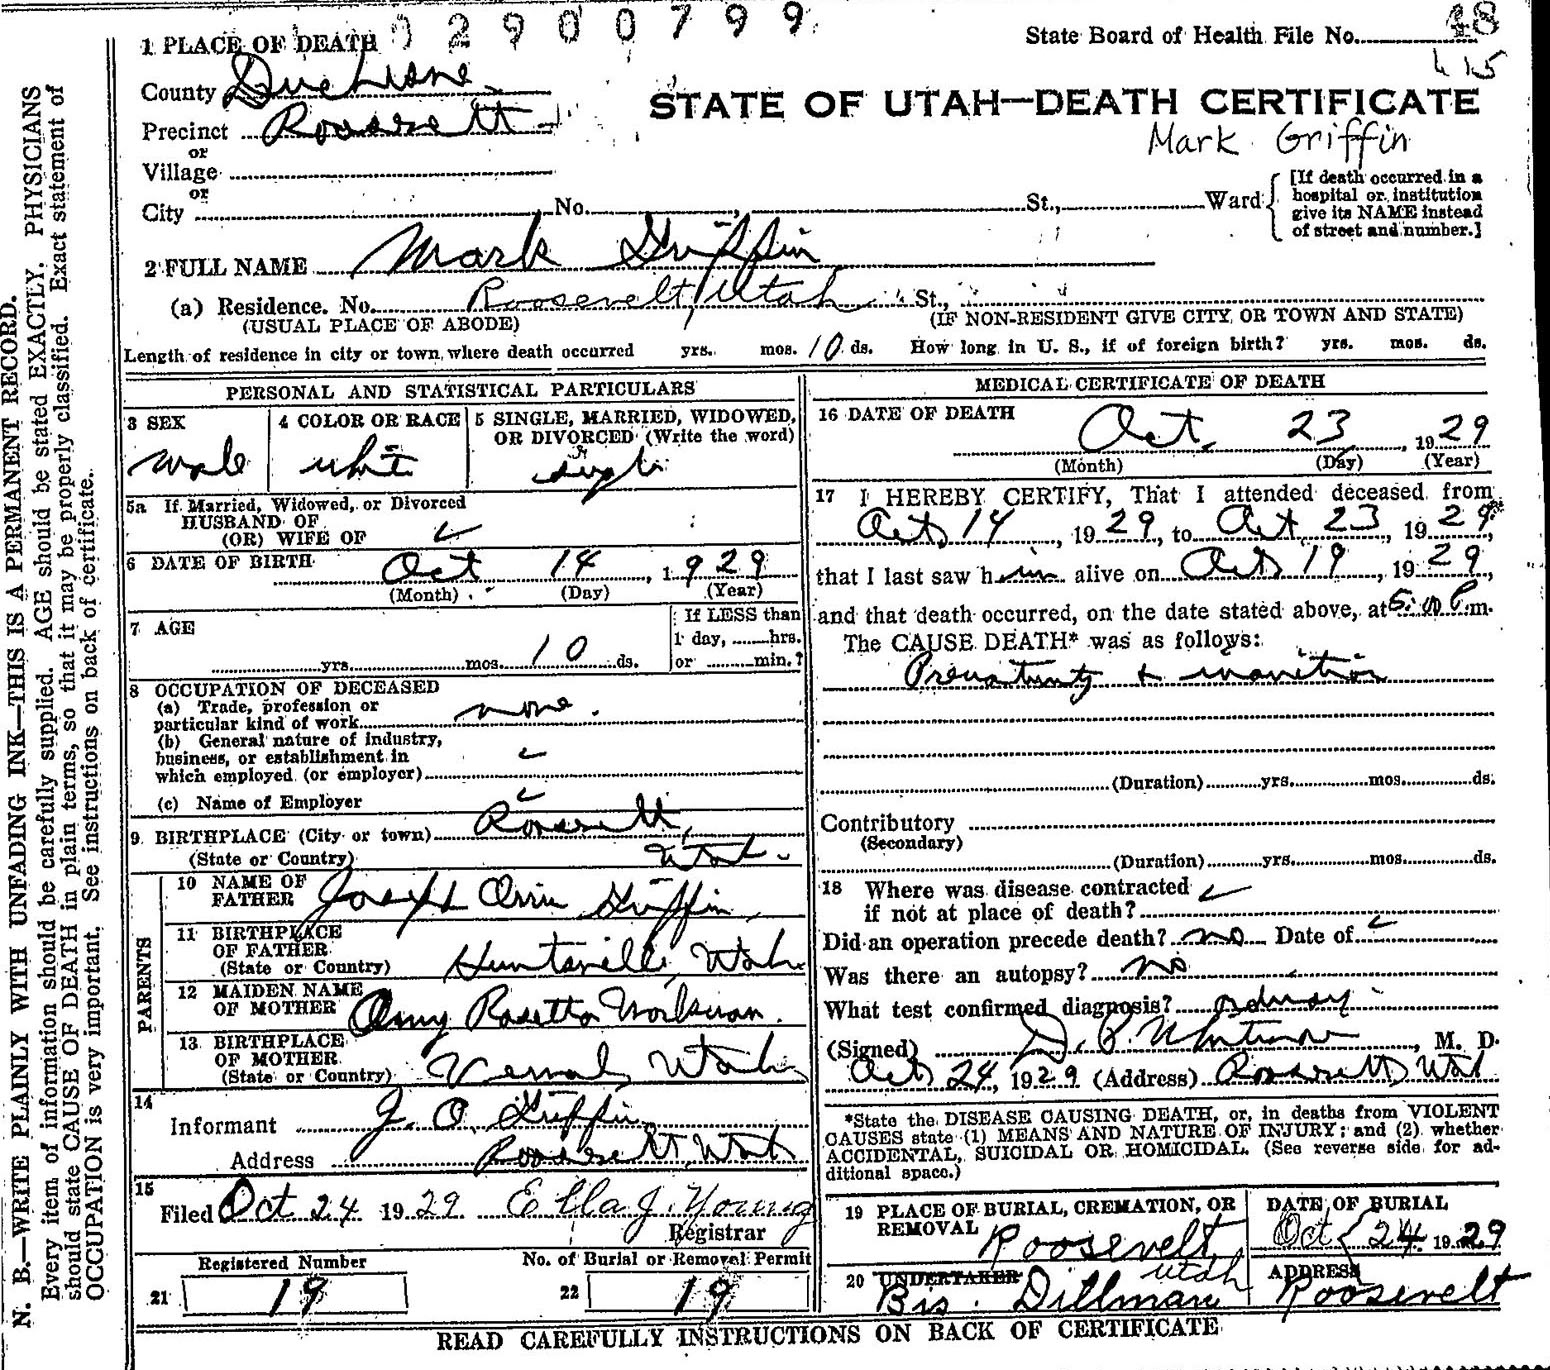 02900799
1 PLACE OF DEATH
State Board of Health File No. 48
415
County Duchesne
STATE OF UTAH—DEATH CERTIFICATE
Precinct Roosevelt
Mark Griffin
or
Village
or
City No. St., Ward
[If death occurred in a
hospital or institution
give its NAME instead
of street and number.]
2 FULL NAME Mark Griffin
(a) Residence. No. Roosevelt, Utah St.,
(USUAL PLACE OF ABODE) (IF NON-RESIDENT GIVE CITY OR TOWN AND STATE)
Length of residence in city or town where death occurred yrs. mos. 10 ds. How long in U. S., if of foreign birth? yrs. mos. ds.
PERSONAL AND STATISTICAL PARTICULARS
3 SEX
male
4 COLOR OR RACE
white
5 SINGLE, MARRIED, WIDOWED,
OR DIVORCED (Write the word)
single
5a If Married, Widowed, or Divorced
HUSBAND OF
(OR) WIFE OF
6 DATE OF BIRTH Oct 14, 1929
(Month) (Day) (Year)
7 AGE
yrs. mos. 10 ds.
If LESS than
1 day, hrs.
or min.?
8 OCCUPATION OF DECEASED
(a) Trade, profession or
particular kind of work none.
(b) General nature of industry,
business, or establishment in
which employed (or employer)
(c) Name of Employer
9 BIRTHPLACE (City or town) Roosevelt,
(State or Country) Utah.
PARENTS
10 NAME OF
FATHER Joseph Orrin Griffin,
11 BIRTHPLACE
OF FATHER
(State or Country) Huntsville, Utah
12 MAIDEN NAME
OF MOTHER Amy Rosetta Workman.
13 BIRTHPLACE
OF MOTHER
(State or Country) Vernal, Utah
14
Informant J. O. Griffin,
Address Roosevelt, Utah
15
Filed Oct 24 1929 Ella J. Young
Registrar
Registered Number
21 19
No. of Burial or Removal Permit
22 19
MEDICAL CERTIFICATE OF DEATH
16 DATE OF DEATH
Oct. 23, 1929
(Month) (Day) (Year)
17 I HEREBY CERTIFY, That I attended deceased from
Oct 14, 1929, to Oct. 23, 1929,
that I last saw him alive on Oct 19, 1929,
and that death occurred, on the date stated above, at 5:00 P.m.
The CAUSE DEATH* was as follows:
Prematurity & inanition
(Duration) yrs. mos. ds.
Contributory
(Secondary)
(Duration) yrs. mos. ds.
18 Where was disease contracted
if not at place of death?
Did an operation precede death? no Date of
Was there an autopsy? no
What test confirmed diagnosis? ordinary
(Signed) D. P. Whitmore, M. D.
Oct 24, 1929 (Address) Roosevelt Utah
*State the DISEASE CAUSING DEATH, or, in deaths from VIOLENT
CAUSES state (1) MEANS AND NATURE OF INJURY; and (2) whether
ACCIDENTAL, SUICIDAL OR HOMICIDAL. (See reverse side for ad-
ditional space.)
19 PLACE OF BURIAL, CREMATION, OR
REMOVAL Roosevelt,
Utah
DATE OF BURIAL
Oct 24 1929
20 UNDERTAKER
Bis. Dillman
ADDRESS
Roosevelt
READ CAREFULLY INSTRUCTIONS ON BACK OF CERTIFICATE
N. B.—WRITE PLAINLY WITH UNFADING INK—THIS IS A PERMANENT RECORD.
Every item of information should be carefully supplied. AGE should be stated EXACTLY. PHYSICIANS
should state CAUSE OF DEATH in plain terms, so that it may be properly classified. Exact statement of
OCCUPATION is very important. See instructions on back of certificate.